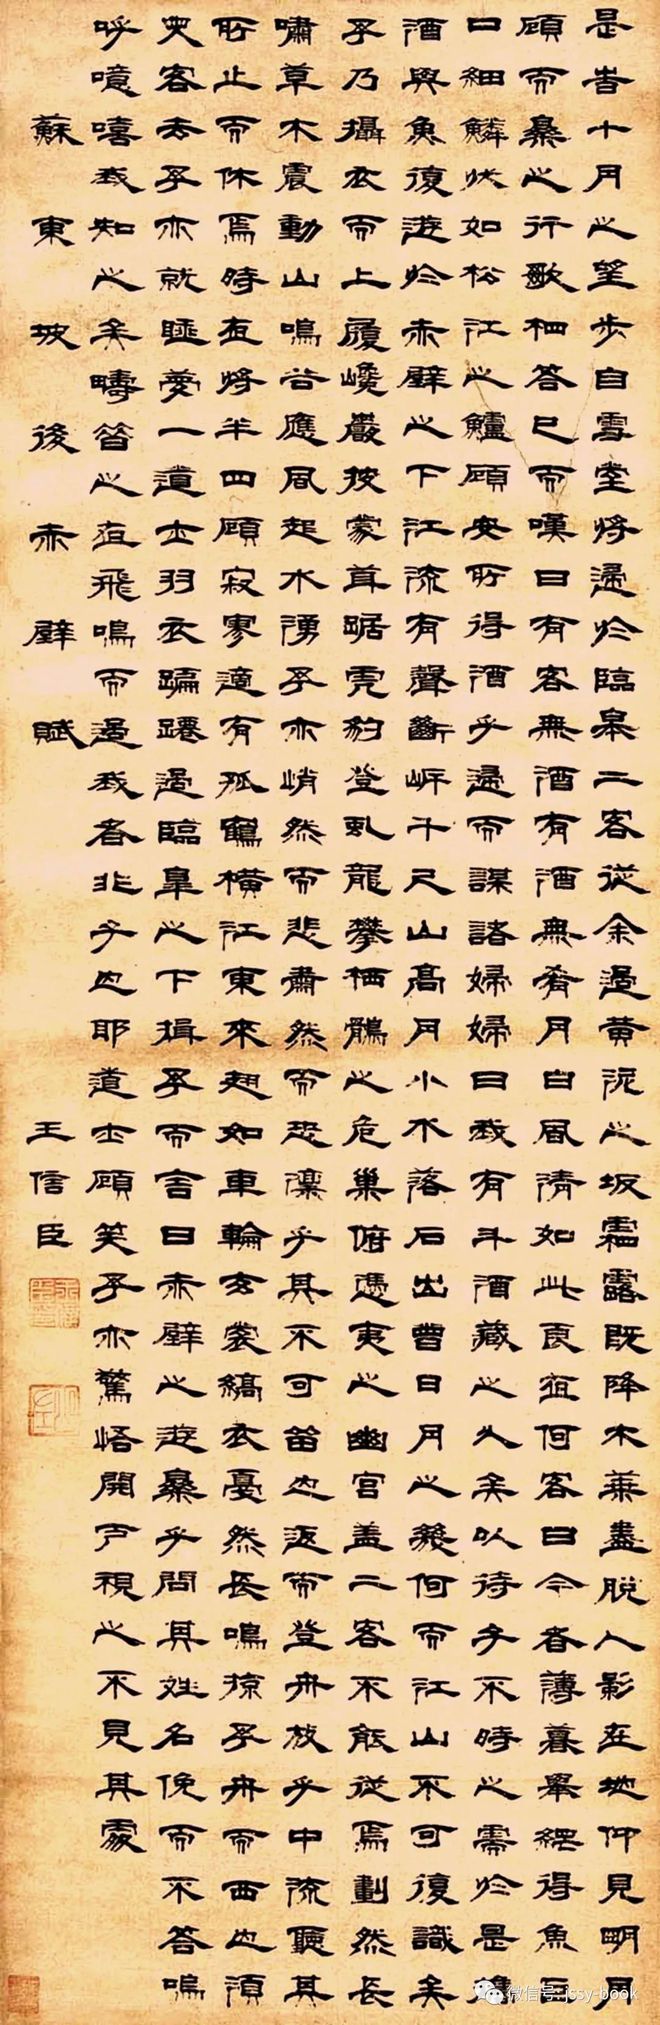 是歲十月之望步自雪堂將歸於臨皋二客從余過黃泥之坂霜露既降木葉盡脫人影在地仰見明月
顧而樂之行歌相答已而嘆曰有客無酒有酒無肴月白風清如此良夜何客曰今者薄暮舉網得魚巨
口細鱗狀如松江之鱸顧安所得酒乎歸而謀諸婦婦曰我有斗酒藏之久矣以待子不時之需於是攜
酒與魚復遊於赤壁之下江流有聲斷岸千尺山高月小水落石出曾日月之幾何而江山不可復識矣
予乃攝衣而上履巉巖披蒙茸踞虎豹登虬龍攀栖鶻之危巢俯憑夷之幽宮蓋二客不能從焉劃然長
嘯草木震動山鳴谷應風起水湧予亦悄然而悲肅然而恐凜乎其不可留也返而登舟放乎中流聽其
所止而休焉時夜將半四顧寂寥適有孤鶴橫江東來翅如車輪玄裳縞衣戛然長鳴掠予舟而西也須
臾客去予亦就睡夢一道士羽衣蹁躚過臨皋之下揖予而言曰赤壁之遊樂乎問其姓名俛而不答嗚
呼噫嘻我知之矣疇昔之夜飛鳴而過我者非子也耶道士顧笑予亦驚悟開戶視之不見其處
蘇東坡後赤壁賦 王信臣
微信号: jssy-book